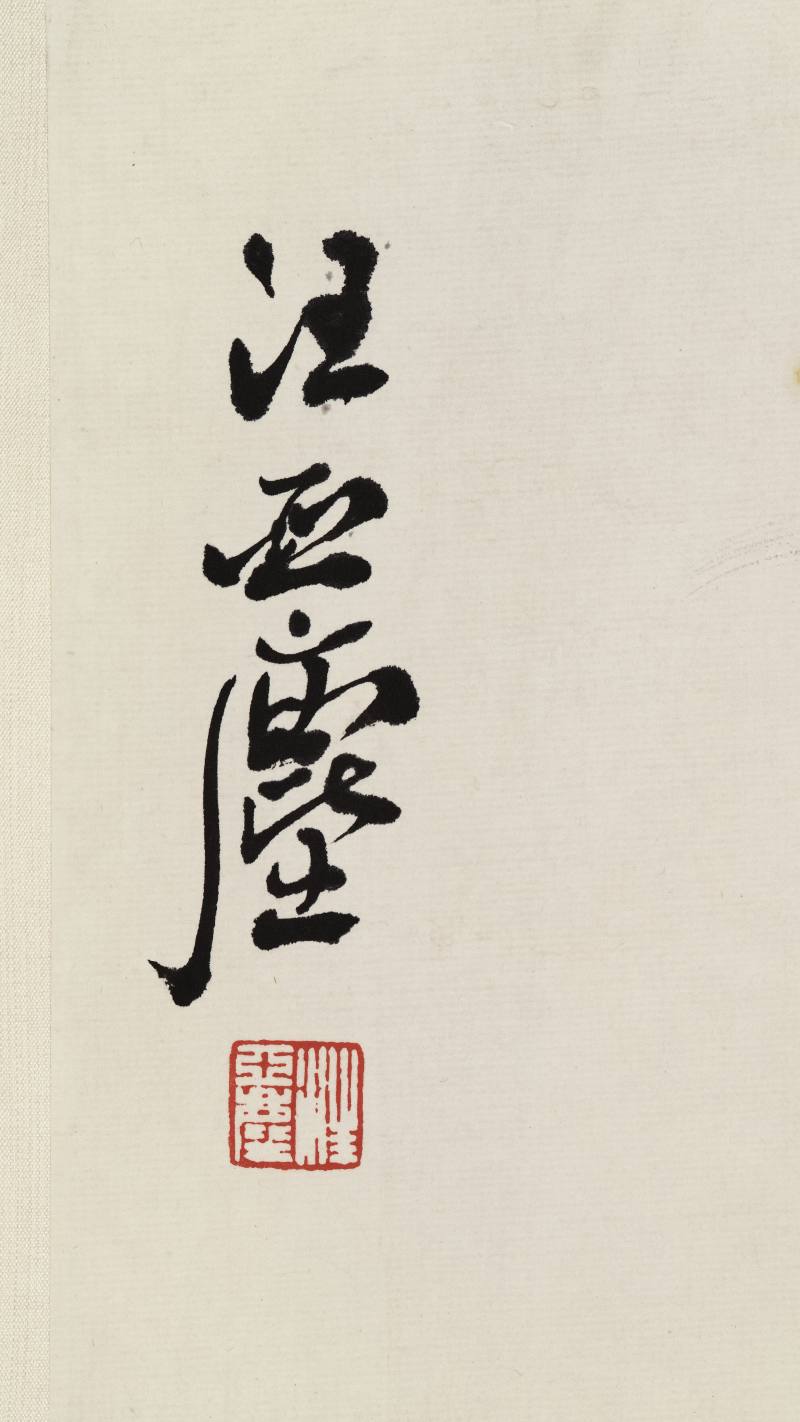 汪亞塵
汪亞塵